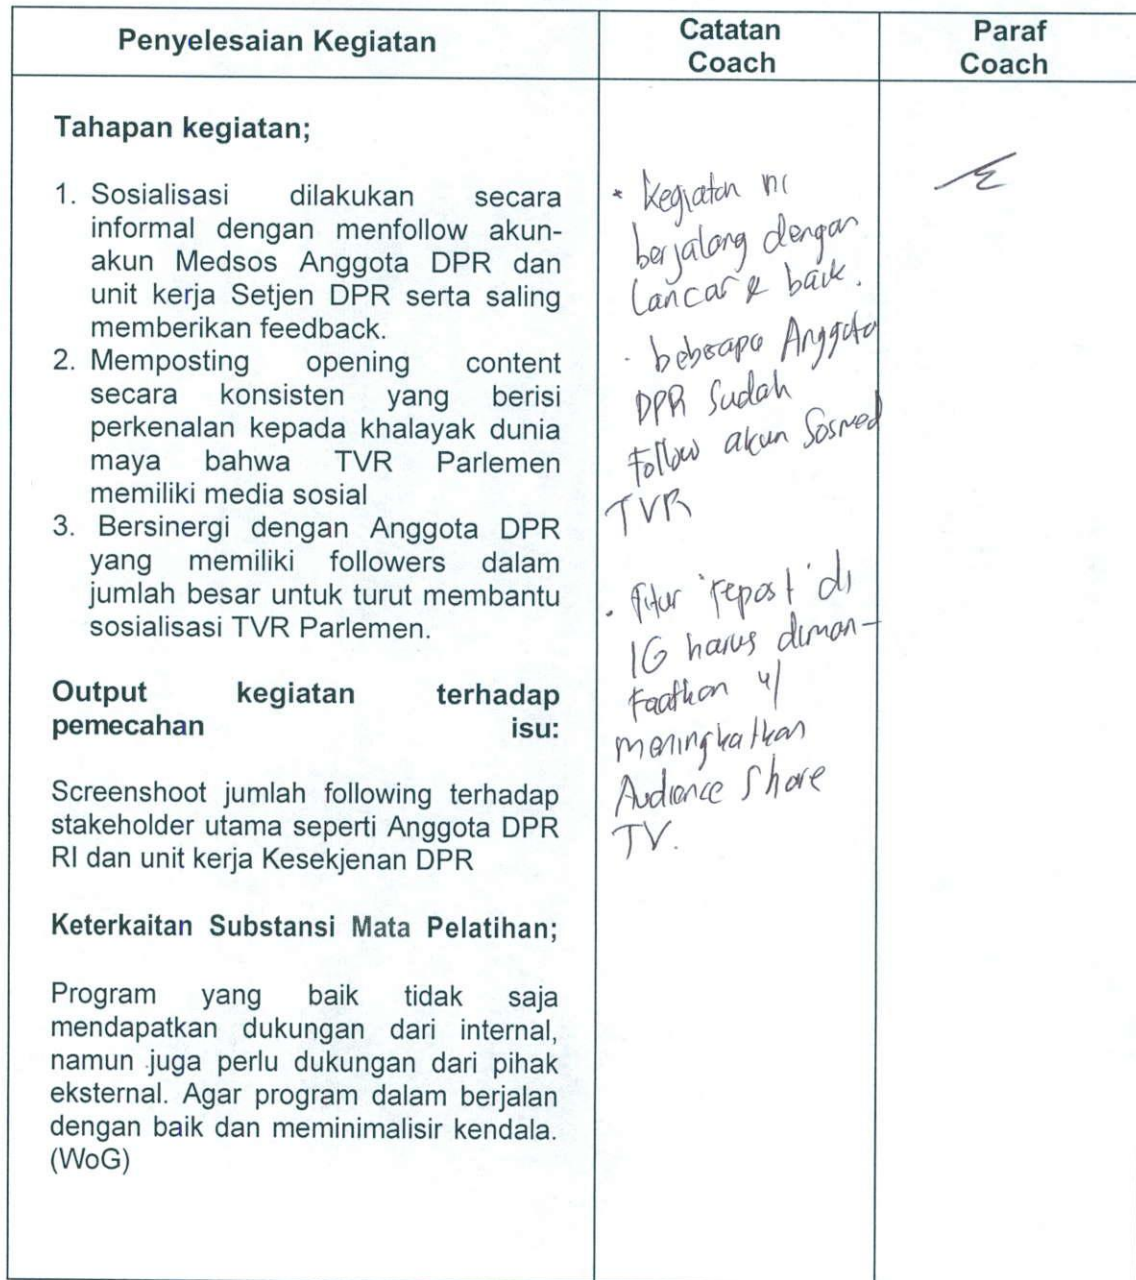 Penyelesaian Kegiatan
Catatan
Coach
Paraf
Coach
Tahapan kegiatan;
1. Sosialisasi dilakukan secara
informal dengan menfollow akun-
akun Medsos Anggota DPR dan
unit kerja Setjen DPR serta saling
memberikan feedback.
2. Memposting opening content
secara konsisten yang berisi
perkenalan kepada khalayak dunia
maya bahwa TVR Parlemen
memiliki media sosial
3. Bersinergi dengan Anggota DPR
yang memiliki followers dalam
jumlah besar untuk turut membantu
sosialisasi TVR Parlemen.
Output kegiatan terhadap
pemecahan isu:
Screenshoot jumlah following terhadap
stakeholder utama seperti Anggota DPR
RI dan unit kerja Kesekjenan DPR
Keterkaitan Substansi Mata Pelatihan;
Program yang baik tidak saja
mendapatkan dukungan dari internal,
namun juga perlu dukungan dari pihak
eksternal. Agar program dalam berjalan
dengan baik dan meminimalisir kendala.
(WoG)
• Kegiatan ni
berjalang dengan
lancar & baik.
- beberapa Anggota
DPR Sudah
follow akun Sosmed
TVR
. fitur 'repost' di
IG harus diman-
faatkan u/
meningkatkan
Audience Share
TV.